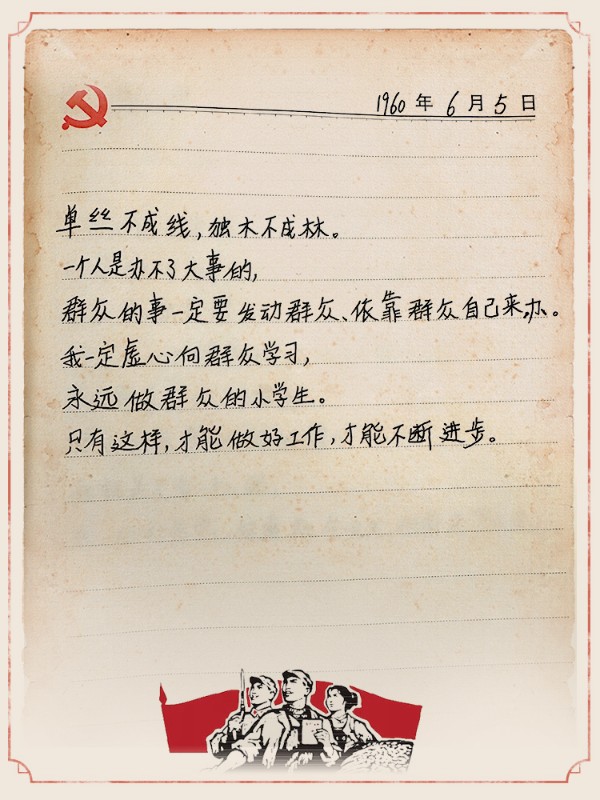 1960年6月5日
单丝不成线,独木不成林。
一个人是办不了大事的,
群众的事一定要发动群众、依靠群众自己来办。
我一定虚心向群众学习,
永远做群众的小学生。
只有这样,才能做好工作,才能不断进步。